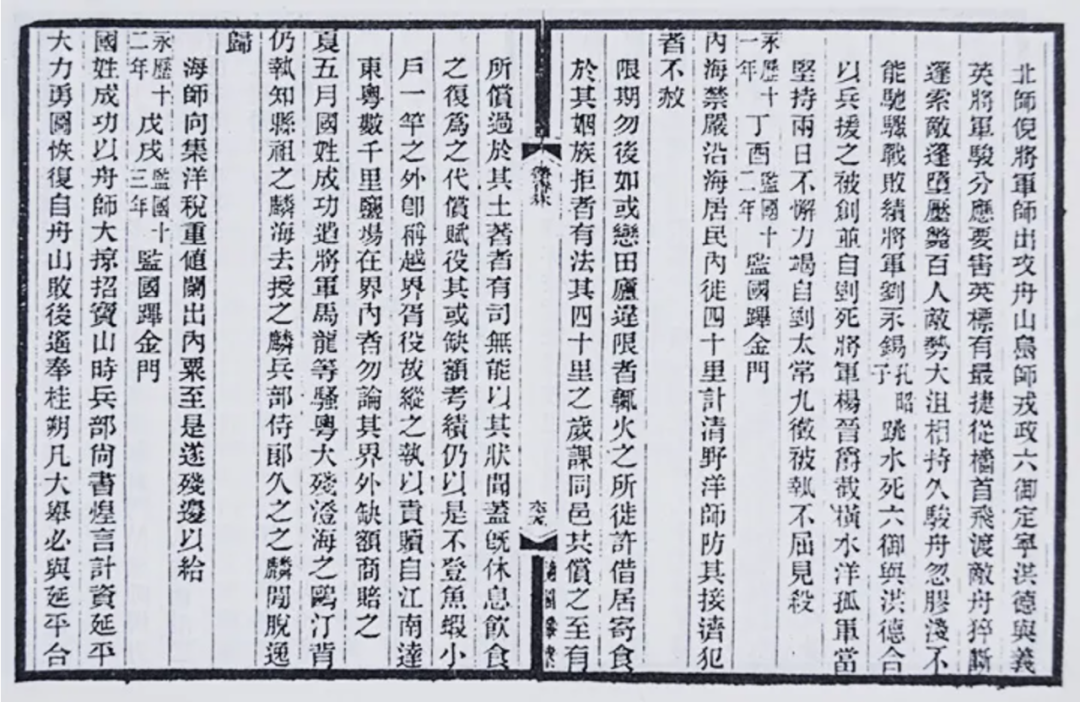 北師倪將軍師出攻舟山島師戎政六御定寧洪德與義
英將軍駿分應要害英標有最捷從檣首飛渡敵舟猝斷
蓬索敵蓬墮壓斃百人敵勢大沮相持久駿舟忽膠淺不
能馳驟戰敗績將軍劉永錫孔昭子跳水死六御與洪德合
以兵援之被創並自剄死將軍楊晉爵截橫水洋孤軍當
堅持兩日不懈力竭自剄太常九徵被執不屈見殺
永歷十一年丁酉監國十二年監國蹕金門
內海禁嚴沿海居民內徙四十里計清野洋師防其接濟犯
者不赦
限期勿後如或戀田廬違限者輒火之所徙許借居寄食
於其姻族拒者有法其四十里之歲課同邑共償之至有
所償過於其土著者有司無能以其狀聞蓋既休息飲食
之復為之代償賦役其或缺額考績仍以是不登魚蝦小
戶一竿之外卽稱越界胥役故縱之執以責贖自江南達
東粵數千里鹽場在界內者勿論其界外缺額商賠之
夏五月國姓成功遣將軍馬龍等騷粵大殘澄海之鷗汀背
仍執知縣祖之麟海去授之麟兵部侍郎久之之麟閒脫逸
歸
海師向集洋稅重値闌出內粟至是遂殘邊以給
永歷十二年戊戌監國十三年監國蹕金門
國姓成功以舟師大掠招寶山時兵部尙書煌言計資延平
大力勇圖恢復自舟山敗後遙奉桂朔凡大舉必與延平台